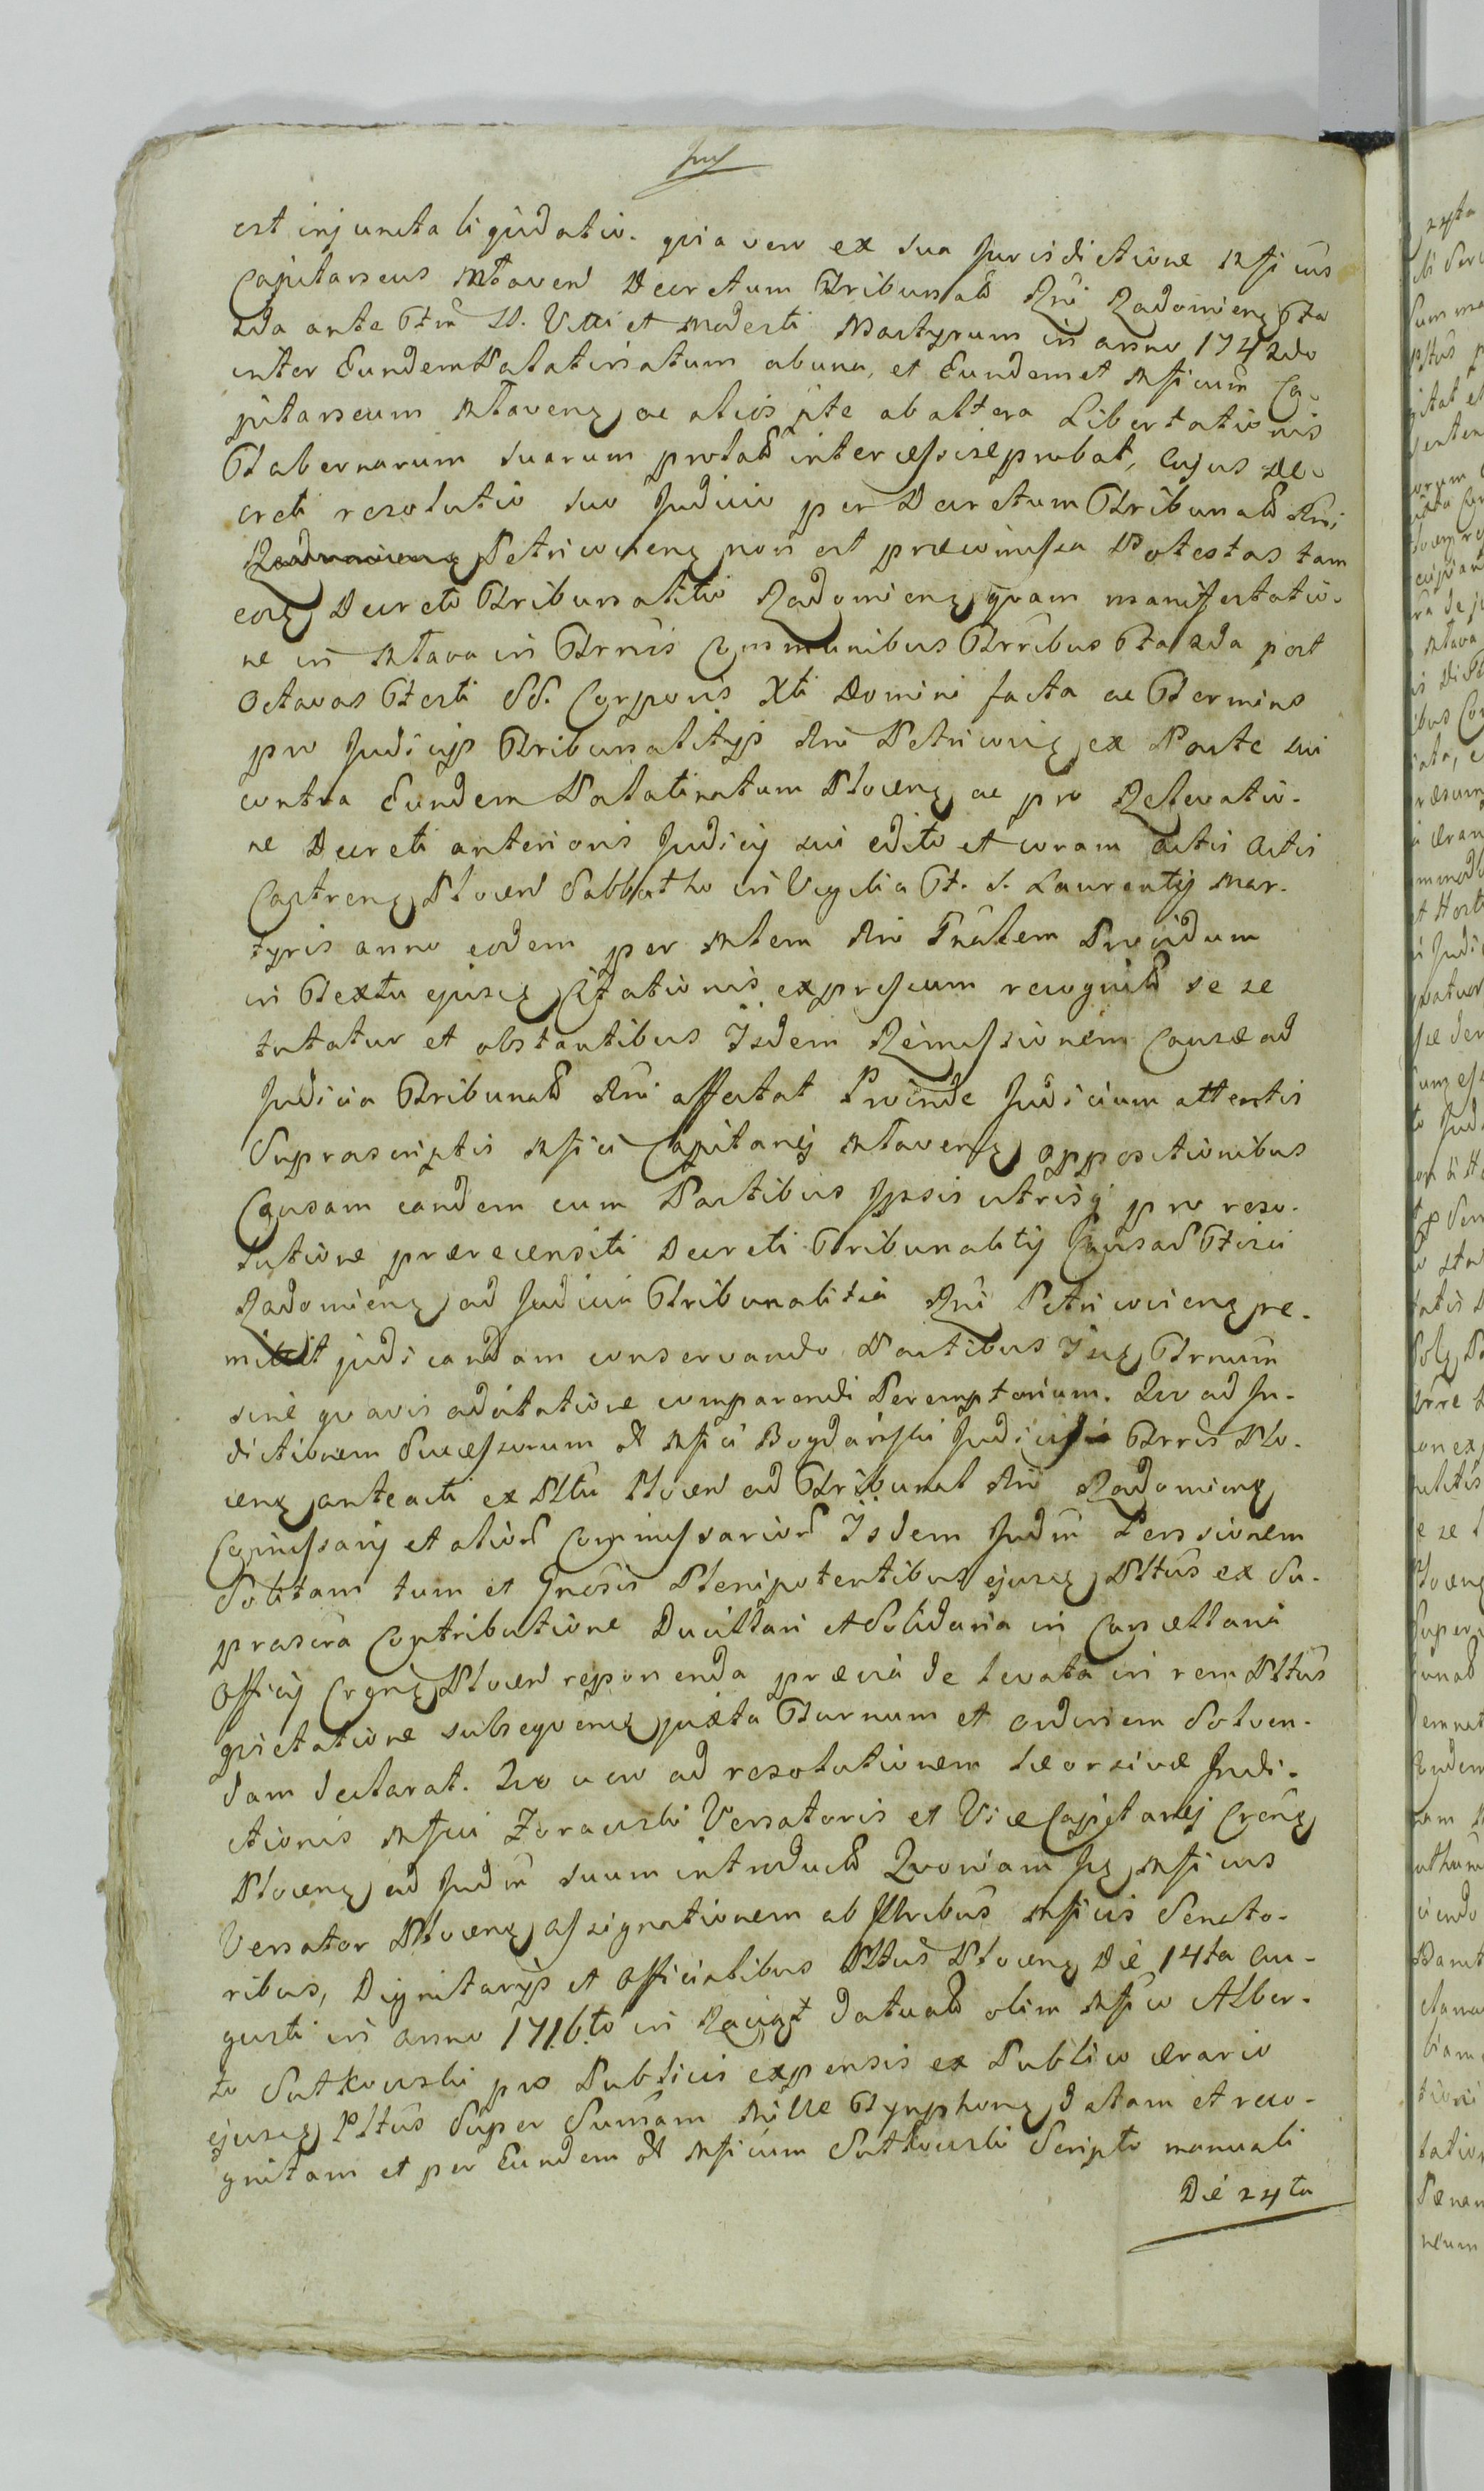 est injuncta liqūidatio. quia vero ex sua Jurisdictione Mficus
Capitaneus Mlaven Decretum Tribunal Rni Radomienꝫ Fta
2da ante Ftm SS. Viti et Modesti Martyrum in anno 1742do
inter Eundem Palatinatum ab una, et Eundemet Mficum Ca-
pitaneum Mlavenꝫ ac alios pte ab altera Libertationis
Tabernarum suarum prolat intercessise probat, cujus De-
creti resolutio suo Judicio per Decretum Tribunal Rni
Petricovienꝫ non est præcomissa Potestas tam
eoꝫ Decreto Tribunalitio Radomienꝫ quam manifestatio-
ne in Mlava in Trnis Communibus Trribus Fta 2da post
Octavas Festi SS. Corporis Xti Domini facta ac Termino
pro Judicijs Tribunalitijs Rni Petricovienꝫ ex Parte sui
contra Eundem Palatinatum Plocenꝫ ac pro Relevatio-
ne Decreti anterioris Judicij sui edito et coram actis Actis
Castrenꝫ Plocen Sabbatho in Vigilia F. S. Laurentij Mar-
tyris anno eodem per Mlem Rni Gnalem Providum
in Textu ejusꝫ Citationis expressum recognit se se
tutatur et obstantibus Jsdem Remissionem Causæ ad
Judicia Tribunal Rni affectat Proinde Judicium attentis
Suprascriptis Mfici Capitanej Mlavenꝫ oppositionibus
Causam eandem cum Partibus Jpsis utrisq pro reso-
lutione prærecensiti Decreti Tribunalitij Causar Fisci
Radomienꝫ ad Judicia Tribunalitia Rni Petricovienꝫ re-
mittit judicandam conservando Partibus Jisꝫ Trnum
sine quavis adcitatione comparendi Peremptorium. Quo ad In-
dictionem Successorum olt Mfici Bogdański Judicis Trris Plo-
cenꝫ anteacti ex Pltu Plocen ad Tribunal Rni Radomienꝫ
Comissarij et alior Commissarior Jsdem Judm Penssionem
Solitam tum et Gnosis Plenipotentibus ejusꝫ Pltus ex Su-
prascra Contributione Ducillari et Solidaria in Cancellaria
Officij Crenꝫ Plocen reponenda prævia de levata in rem Pltus
quietatione subsequenꝫ juxta Turnum et ordinem Solven-
dam declarat. Quo vero ad resolutionem seorsivæ Judi-
ctionis Mfici Zorawski Versatoris et Vice Capitanej Crenꝫ
Plocenꝫ ad Judm suum introduct Quoniam Jꝫ Mficus
Versator Plocenꝫ assignationem ab Jllribus Mficis Senato-
ribus, Dignitarijs et Officialibus Pltus Plocenꝫ Die 14ta Au-
gusti in anno 1716.to in Raciąż datuat olim Mfico Alber-
to Sutkowski pro Publicis expensis ex Publico ærario
ejusꝫ Pltus Super Sumam Mille Tynphonꝫ datam et reco-
gnitam et per Eundem olt Mficum Sutkowski Scripto manuali
Die 24ta